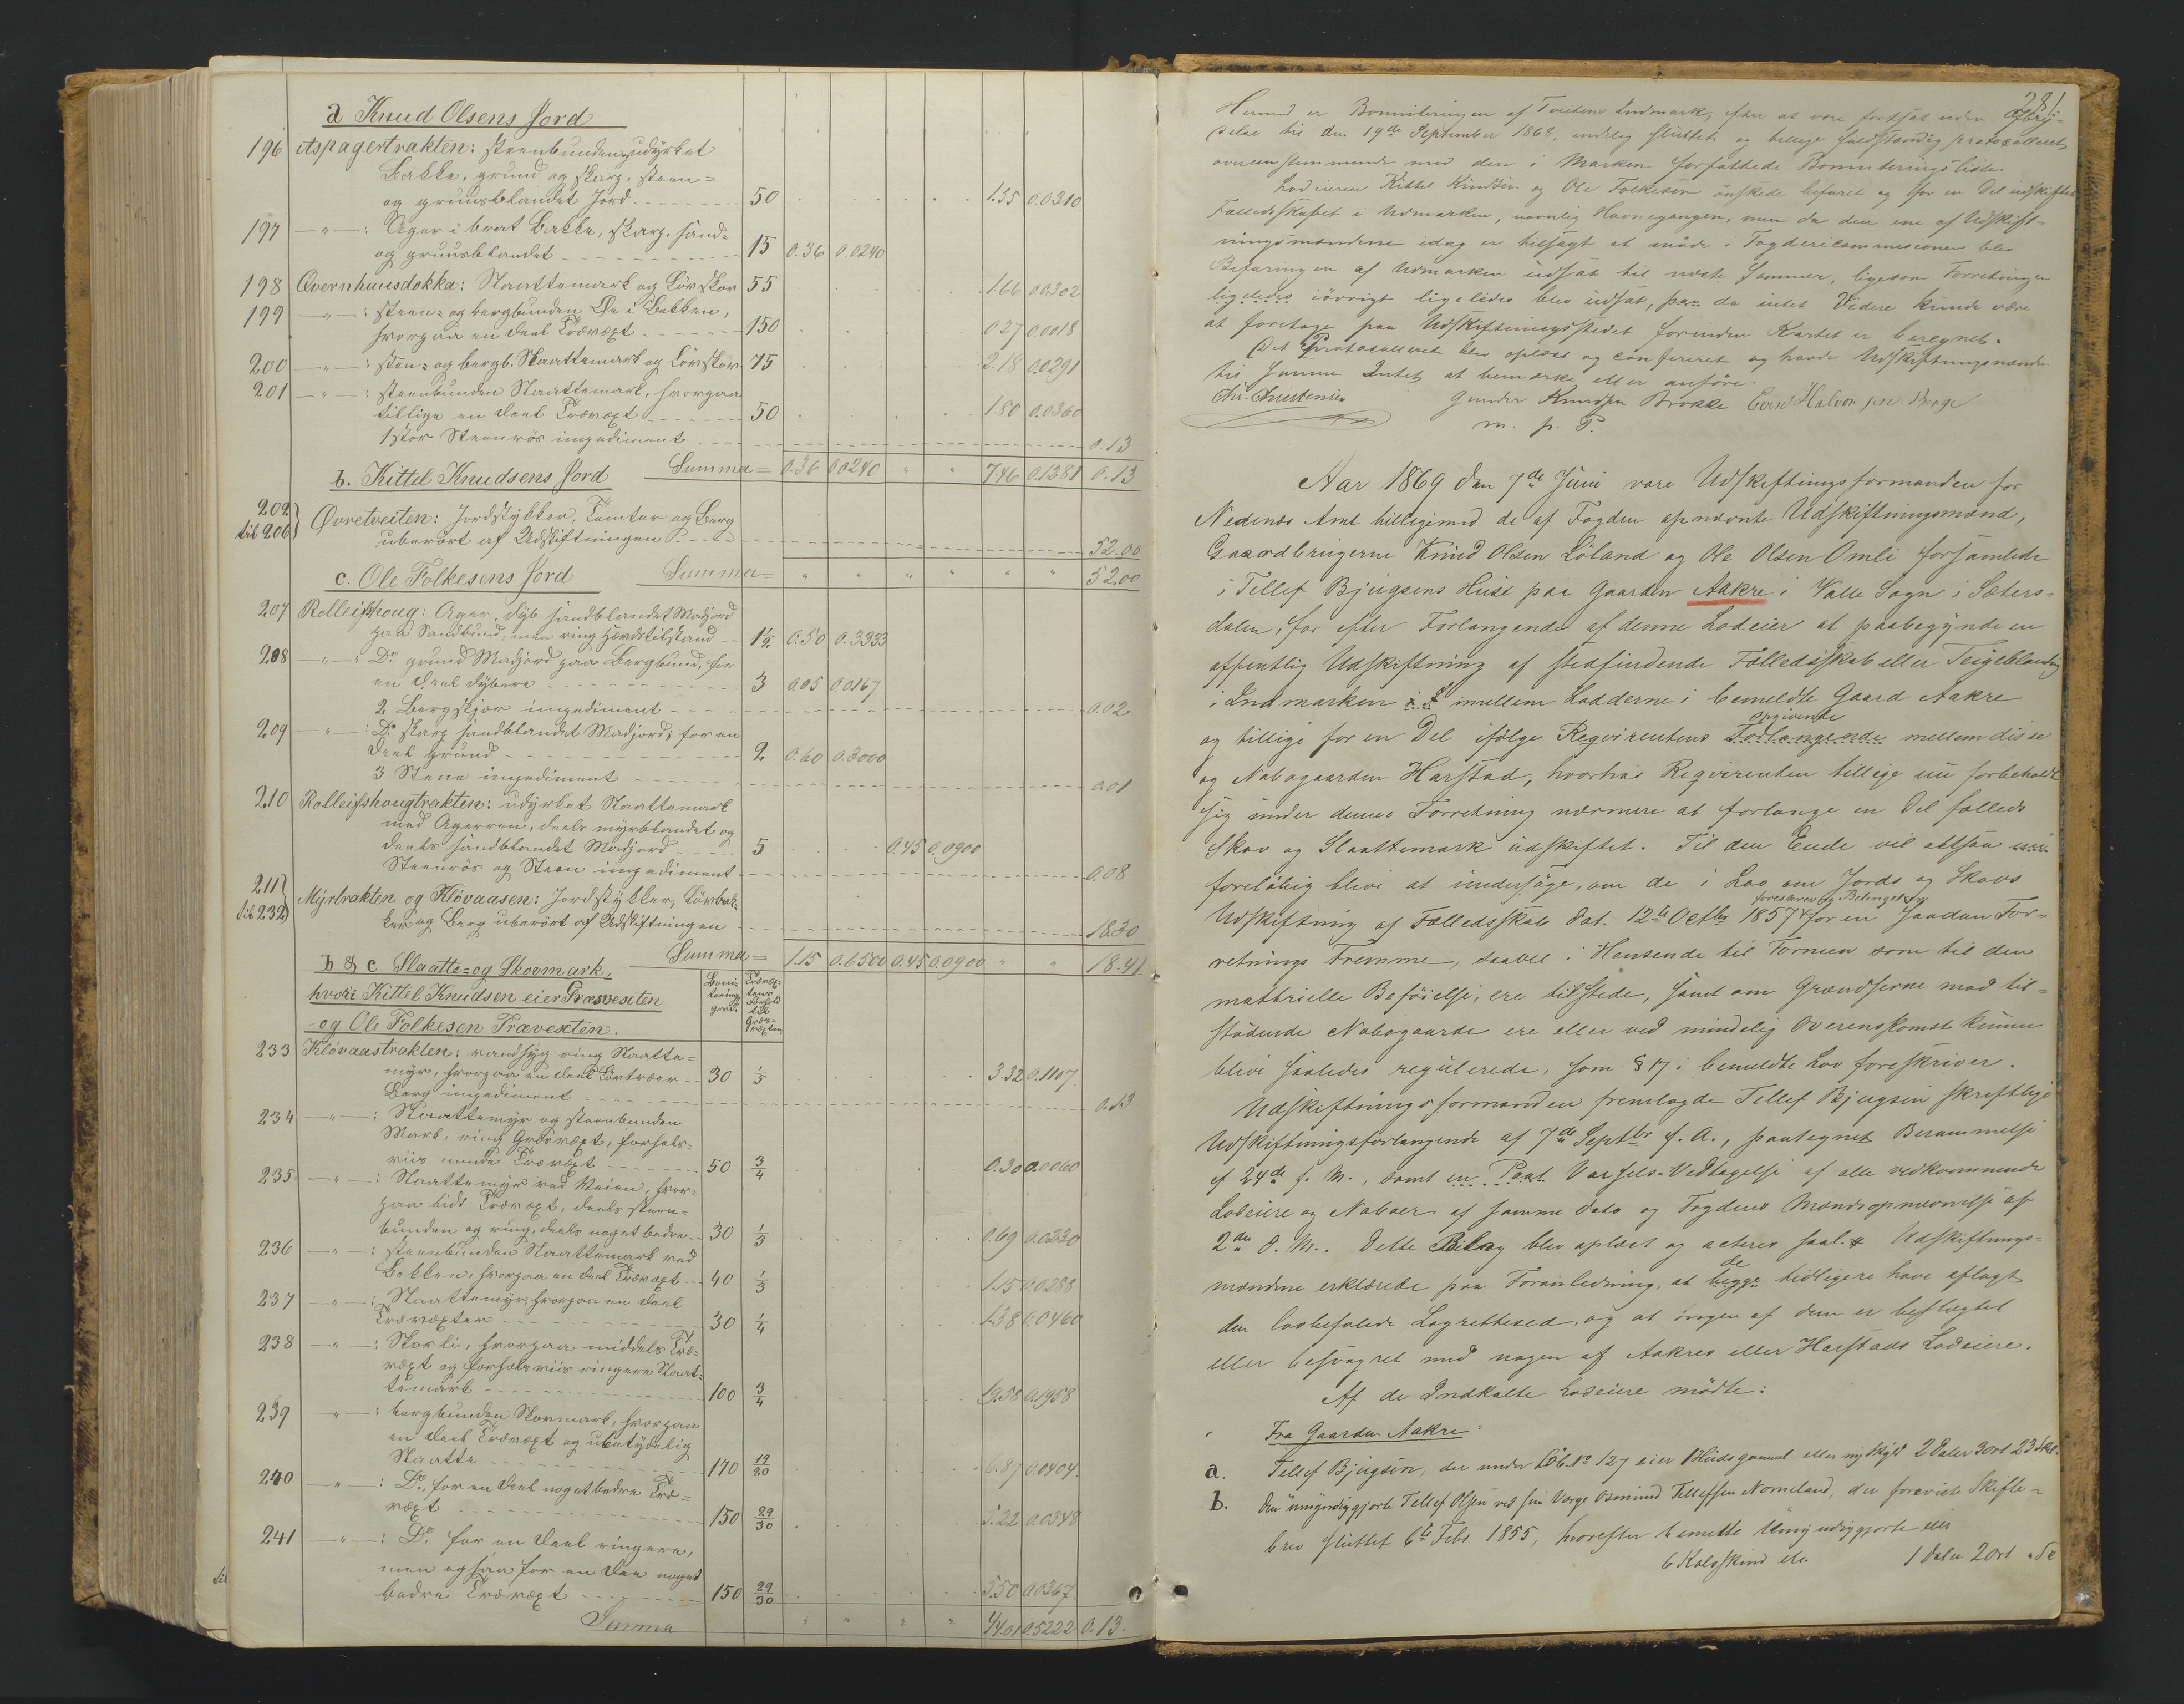 a Knud Olsens Jord
196 Aspagertrakten: steenbunden, udyrket
Bakke, grund og skarp, steen=
og gruusblandet Jord 50 1.55 0.0310
197 —„—: Ager i brat Bakke, skarp, sand=
og gruusblandet 15 0.36 0.0240
198 Qvernhuusdokka: Slaattemark og Lövskov 55 1.66 0.0302
199 —„—: steen= og bergbunden Öe i Bækken,
hvorpaa en Deel Trævæxt 150 0.27 0.0018
200 —„—: sten= og bergb. Slaattemark og Lövskov 75 2.18 0.0291
201 —„—: steenbunden Slaattemark, hvorpaa
tillige en Deel Trævæxt 50 1.80 0.0360
1 stor Steenrös impediment 0.13
Summa = 0.36 0.0240 „ „ 7.46 0.1281 0.13
b. Kittel Knudsens Jord
202 til 206 Övretveiten: Jordstykker, Tomter og Berg
uberört af Udskiftningen 52.00
Summa = „ „ „ „ „ „ 52.00
c. Ole Folkesens Jord
207 Rolleifshoug: Ager, dyb sandblandet Madjord
paa Sandbund, men ring Hævdstilstand 1½ 0.50 0.3333
208 —„—: Do grund Madjord paa Bergbund, for
en Deel dybere 3 0.05 0.0167
2 Bergskjær impediment 0.02
209 —„—: Do skarp sandblandet Madjord, for en
Deel grund 2 0.60 0.3000
3 Stene impediment 0.01
210 Rolleifshougtrakten: udyrket Slaattemark
med Agerren, deels myrblandet og
deels sandblandet Madjord 5 0.45 0.0900
Steenrös og Steen impediment 0.08
211 til 232 Myrtrakten og Klövaasen: Jordstykker, Lövbak=
ker og Berg uberört af Udskiftningen 18.30
Summa = 1.15 0.6500 0.45 0.0900 „ „ 18.41
b & c Slaatte= og Skovmark,
hvori Kittel Knudsen eier Græsvexten
og Ole Folkesen Trævexten.
Boni=
terings
grad.
Trævæx=
tens
Forhold
til
Græs=
væxten
233 Klövaastrakten: vandsyg ring Slaatte=
myr, hvorpaa en Deel Lövtræer 30 1/5 3.32 0.1107
Berg impediment 0.13
234 —„—: Slaattemyr og steenbunden
Mark, ring Græsvæxt, forhols=
viis mindre Trævæxt 50 3/4 0.30 0.0060
235 —„—: Slaattemyr ved Veien, hvor=
paa lidt Trævæxt, deels steen=
bunden og ring, deels noget bedre 30 1/5 0.69 0.0230
236 —„—: steenbunden Slaattemark ved
Bækken, hvorpaa en Deel Trævæxt 40 1/3 1.15 0.0288
237 —„—: Slaattemyr, hvorpaa en Deel
Trævæxter 30 1/4 1.38 0.0460
238 —„—: Skovli, hvorpaa middels Træ=
væxt og forholsviis ringere Slaat=
temark 100 3/4 19.58 0.1958
239 —„—: bergbunden Skovmark, hvorpaa
en Deel Trævæxt og ubetydelig
Slaatte 170 19/20 6.87 0.0404
240 —„—: Do, for en Deel noget bedre Træ=
væxt 150 29/30 5.22 0.0348
241 —„—: Do for en Deel ringere,
men ogsaa for en Deel noget
bedre Trævæxt 150 29/30 5.50 0.0367
Summa „ „ „ „ 44.01 0.5222 0.13.
281.
Hermed er Boniteringen af Tveitens Indmark, efter at være fortsat uden Afbry-
delse til den 19de September 1868, endelig sluttet og tillige fuldstændig protocolleret
overeensstemmende med den i Marken forfattede Boniteringsliste.
Lodeierne Kittel Knudsen og Ole Folkesen önskede befaret og for en Del udskiftet
Fælledsskabet i Udmarken, navnlig Havnegangen, men da den ene af Udskift-
ningsmændene idag er tilsagt at möde i Fogdericommissionen blev
Befaringen af Udmarken udsat til næste Sommer, ligesom Forretningen
ligeledes iövrigt ligeledes blev udsat, da intet Videre kunde være
at foretage paa Udskiftningsstedet forinden Kartet er beregnet.
Det Protocollerede blev oplæst og confereret og havde Udskiftningsmændene
til Samme Intet at bemærke eller anföre.
Chr. Christensen Gunder Knudsen Brokke Even Halvorsen Berge
m. p. P.
Aar 1869 den 7de Juni vare Udskiftningsformanden for
Nedenæs Amt tilligemed de af Fogden opnævnte Udskiftningsmænd,
Gaardbrugerne Knud Olsen Löland og Ole Olsen Omli forsamlede
i Tellef Bjugsens Huse paa Gaarden Aakre i Valle Sogn i Sæters-
dalen, for efter Forlangende af denne Lodeier at paabegynde en
offentlig Udskiftning af stedfindende Fælledsskab eller Teigeblanding
i Indmarken imellem Lodderne i bemeldte Gaard Aakre
og tillige for en Del ifölge Reqvirentens Forlangende Opgivende mellem disse
og Nabogaarden Harstad, hvorhos Reqvirenten tillige nu forbeholdt
sig under denne Forretning nærmere at forlange en Del fælleds
Skov og Slaattemark udskiftet. Til den Ende vil altsaa
foreløbig blive at undersöge, om de i Lov om Jords og Skovs
Udskiftning af Fælledsskab dat. 12te Octbr 1857 foreskrevne Betingelser for en saadan For-
retnings Fremme, saavel i Hensende til Formen som til den
matrielle Beföielse, ere tilstede, samt om Grændserne mod til-
stödende Nabogaarde ere eller ved mindelig Overenskomst kunne
blive saaledes regulerede, som § 17 i bemeldte Lov foreskriver.
Udskiftningsformanden fremlagde Tellef Bjugsens skriftlige
Udskiftningsforlangende af 7de Septbr f. A., paategnet Berammelse
af 24de f. M., samt en Varsels-Vedtagelse af alle vedkommende
Lodeiere og Naboer af samme Dato og Fogdens Mændsopnævnelse af
2den d. M.. Dette Bilag blev oplæst og acteres saal. Udskiftnings-
mændene erklærede paa Foranledning, at de begge tidligere have aflagt
den lovbefalede Lagrettesed, og at ingen af dem er beslægtet
eller besvogret med nogen af Aakres eller Harstads Lodeiere.
Af de Indkaldte Lodeiere mödte:
Fra Gaarden Aakre:
a. Tellef Bjugsen, der under Löb. No 127 eier 1 Huds gammel eller ny Skyld 2 Daler 3 Ort 23 Skl.
b. Den umyndiggjorte Tellef Olsen ved sin Værge Osmund Tellefsen Nomeland, der foreviste Skifte-
brev sluttet 6te Febr. 1855, hvorefter bemeldte Umyndiggjorte eier
6 Kalvskind 1 Daler 2 Ort